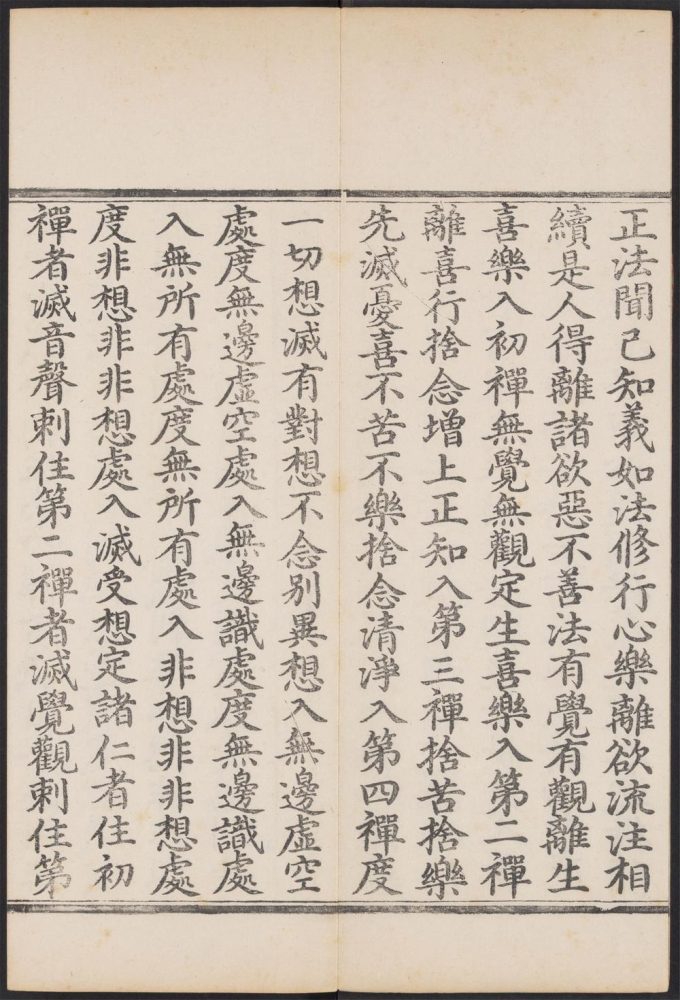 正法聞已知義如法修行心樂離欲流注相
續是人得離諸欲惡不善法有覺有觀離生
喜樂入初禪無覺無觀定生喜樂入第二禪
離喜行捨念增上正知入第三禪捨苦捨樂
先滅憂喜不苦不樂捨念清淨入第四禪度
一切想滅有對想不念別異想入無邊虛空
處度無邊虛空處入無邊識處度無邊識處
入無所有處度無所有處入非想非非想處
度非想非非想處入滅受想定諸仁者住初
禪者滅音聲刺住第二禪者滅覺觀刺住第